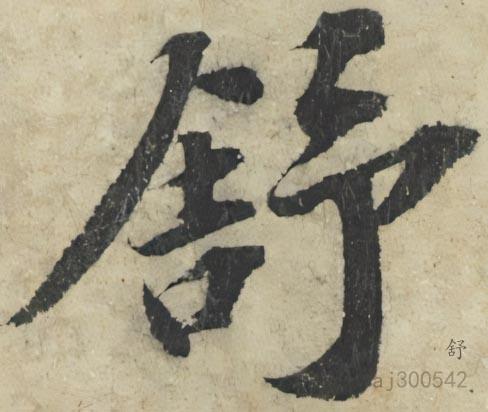 舒
舒
aj300542